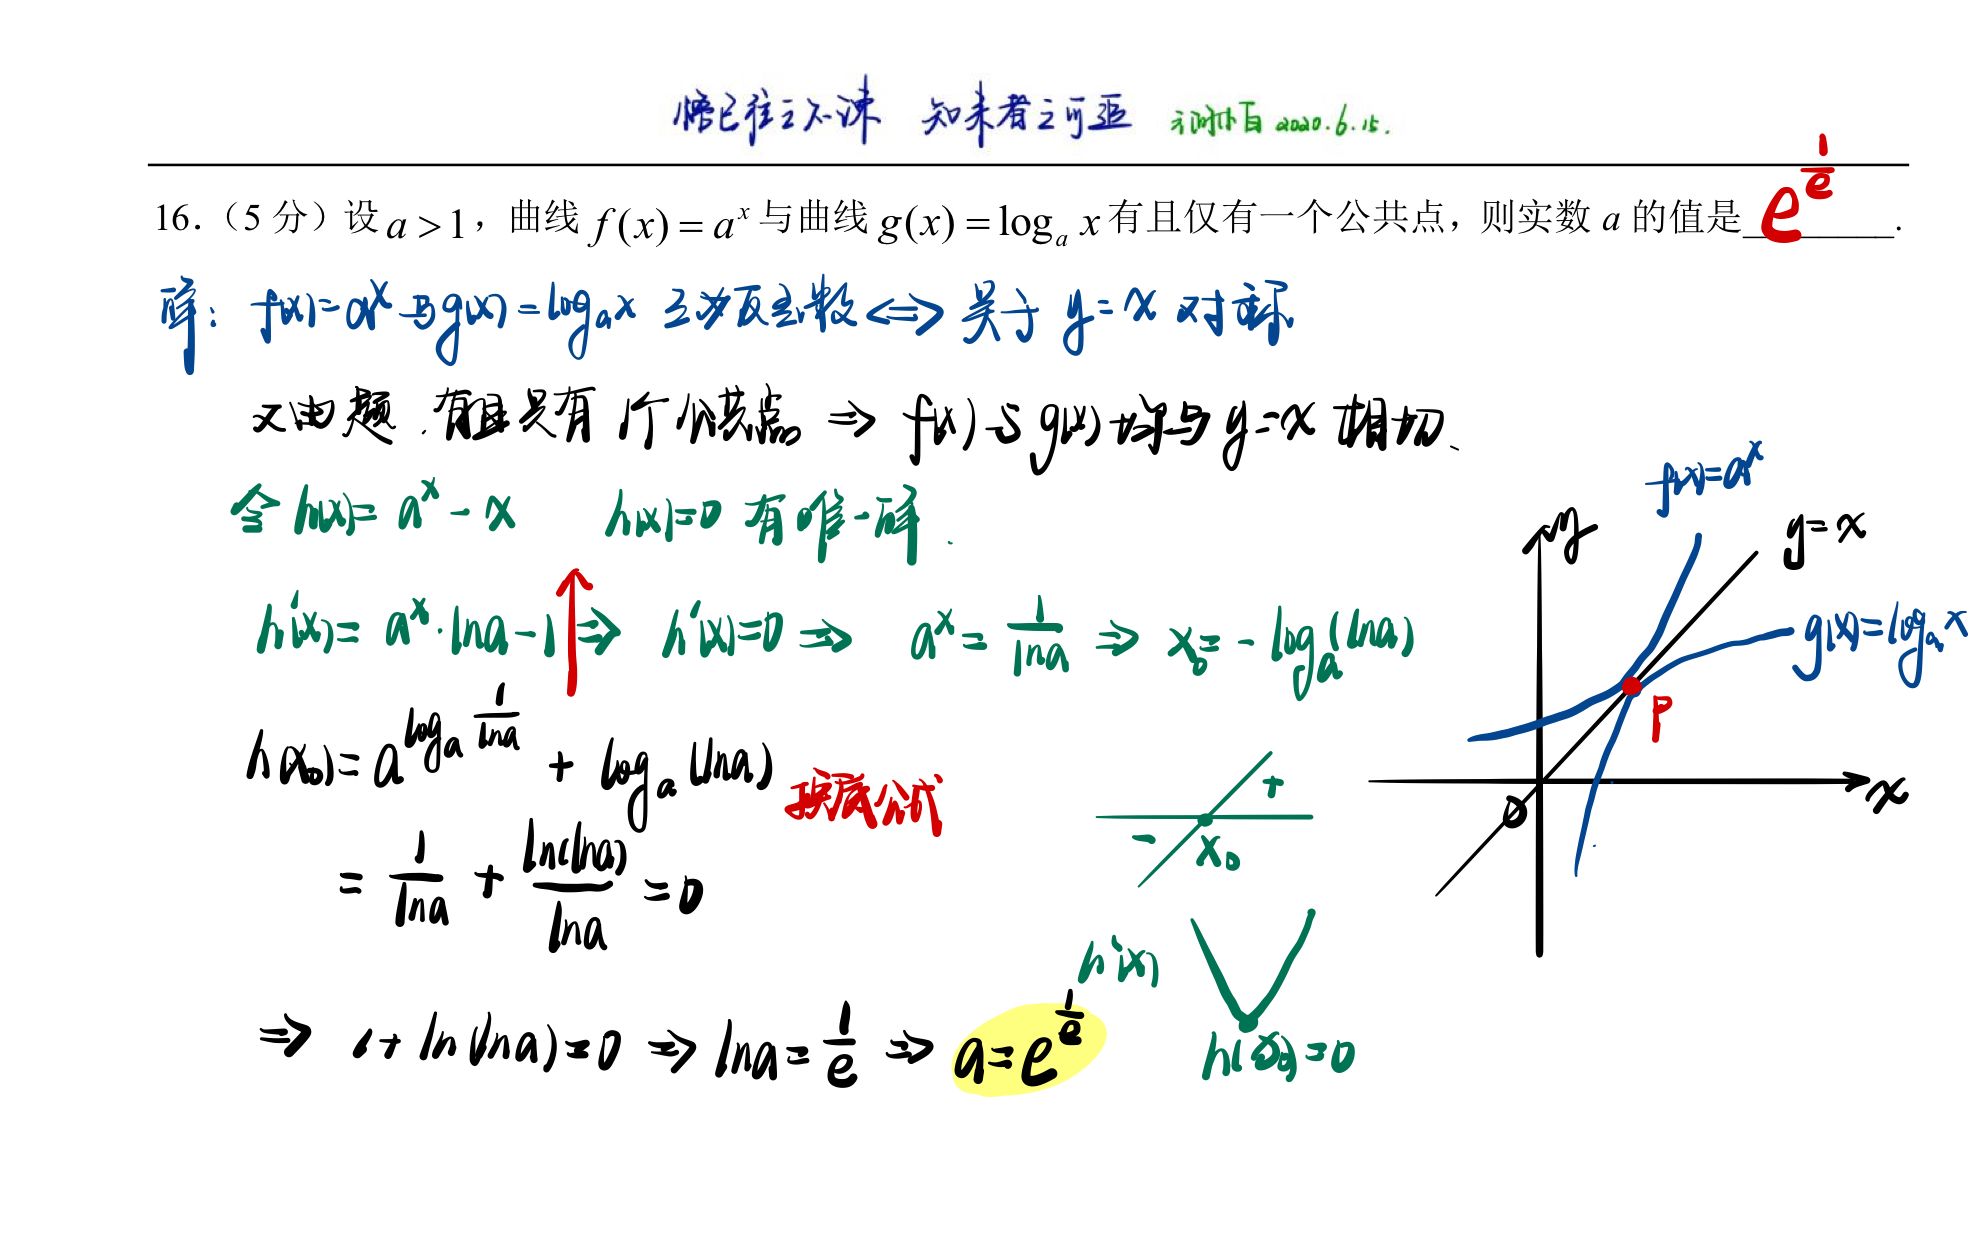 悟已往之不谏 知来者之可追 2020.6.15.
16.（5 分）设 a > 1，曲线 f(x) = a^x 与曲线 g(x) = log_a x 有且仅有一个公共点，则实数 a 的值是 e^{1/e}.
解：f(x)=a^x 与 g(x)=log_a x 互为反函数 ⟺ 关于 y=x 对称
又由题，有且只有1个公共点 ⇒ f(x)与g(x)均与y=x相切.
令 h(x)= a^x - x h(x)=0 有唯一解.
h'(x)= a^x·lna-1 ↑ ⇒ h'(x)=0 ⇒ a^x = 1/lna ⇒ x_0 = -log_a(lna)
h(x_0)= a^{log_a 1/lna} + log_a(lna) 换底公式
= 1/lna + ln(lna)/lna = 0
⇒ 1+ ln(lna)=0 ⇒ lna = 1/e ⇒ a = e^{1/e}
f(x)=a^x
y
y=x
g(x)=log_a x
P
O
x
+
-
x_0
h'(x)
h(x_0)=0